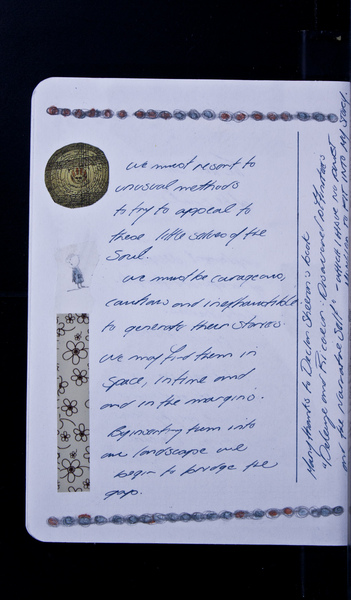 we must resort to
unusual methods
to try to appeal to
these little selves of the
Soul.
we must be courageous,
cautious and inexhaustible
to generate their stories.
We may find them in
space, in time and
and in the margins.
By inserting them into
our landscape we
begin to bridge the
gaps.
Many thanks to Declan Sheerin's book
"Deleuze and Ricoeur: Disavowed Affinities
and the Narrative Self" which I have no
to fit into my story.